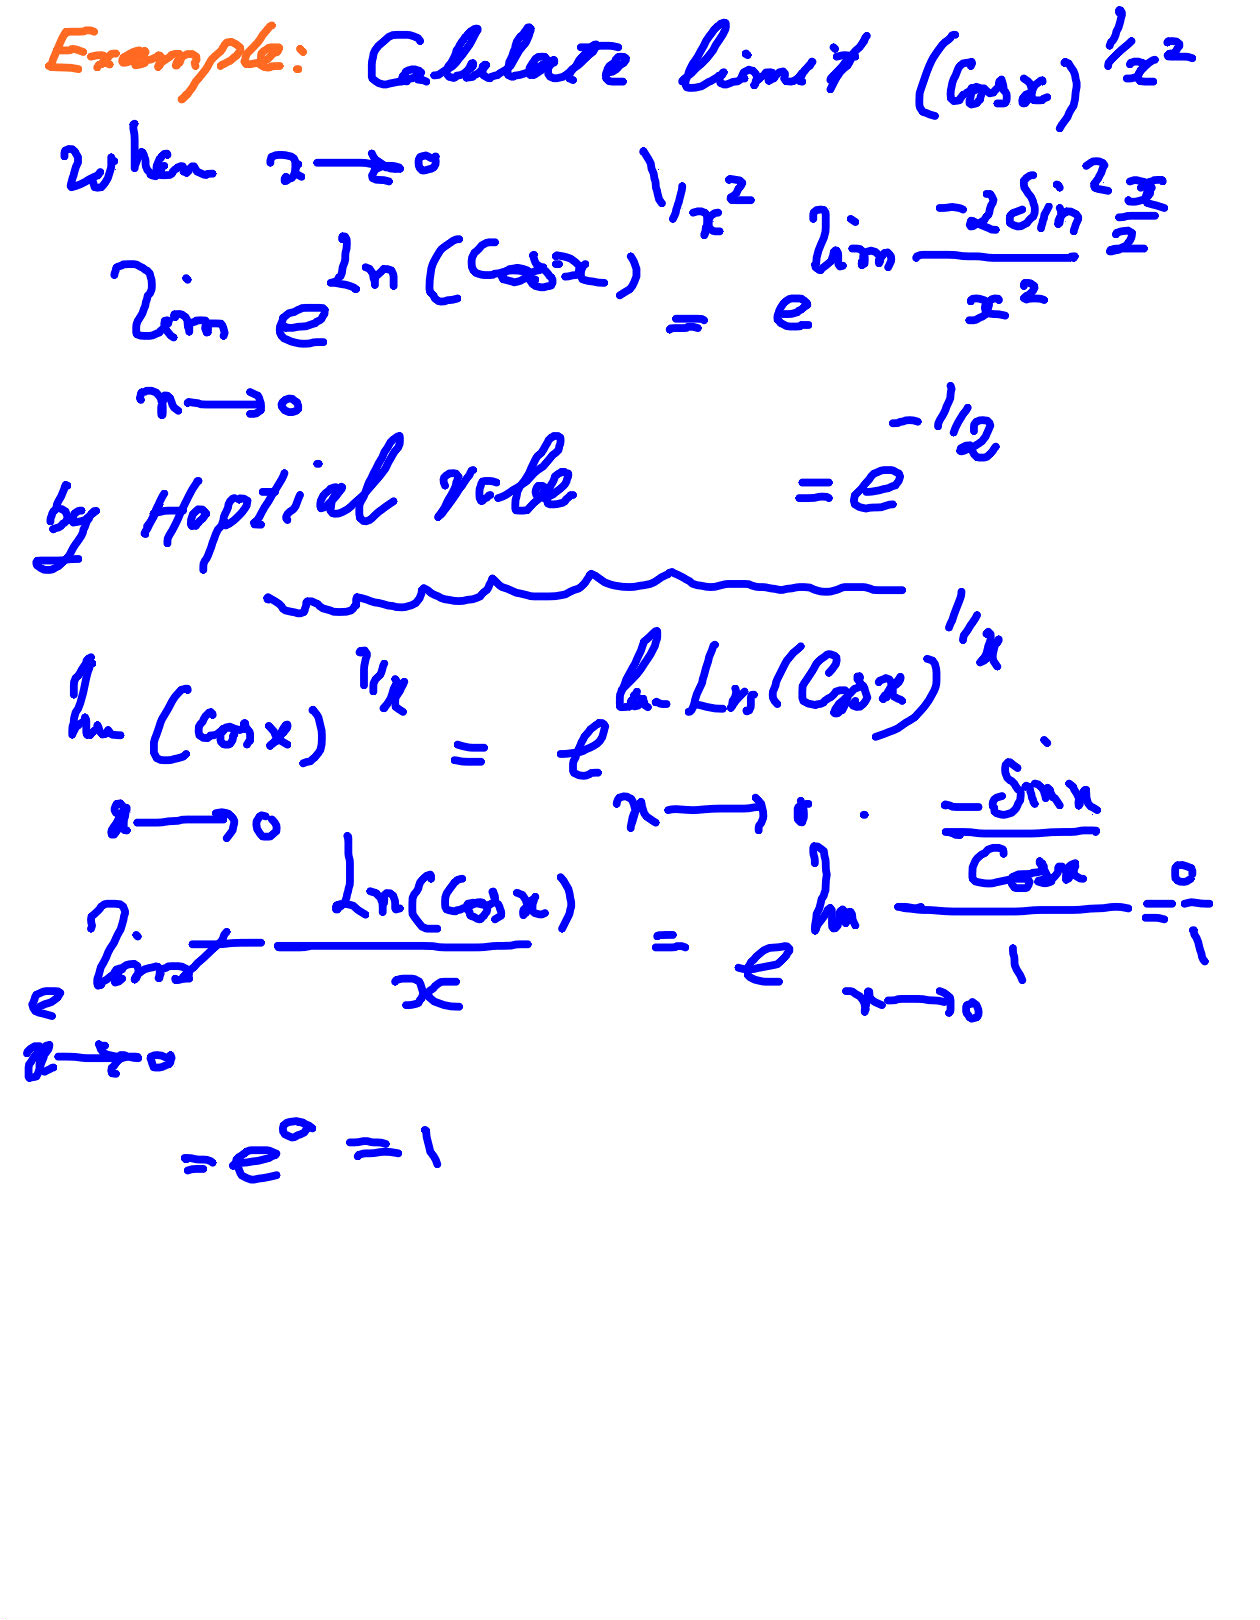 Example: Calulate limit (Cos x)^1/x²
when x → 0
lim e^Ln (Cos x)^1/x² = e^lim -2 Sin² x/2 / x²
x → 0
by Hoptial rule = e^-1/2
lim (Cos x)^1/x = e^lim Ln (Cos x)^1/x
x → 0 x → 0
e^lim Ln(Cos x) / x = e^lim -Sin x / Cos x / 1 = 0/1
x → 0 x → 0
= e^0 = 1